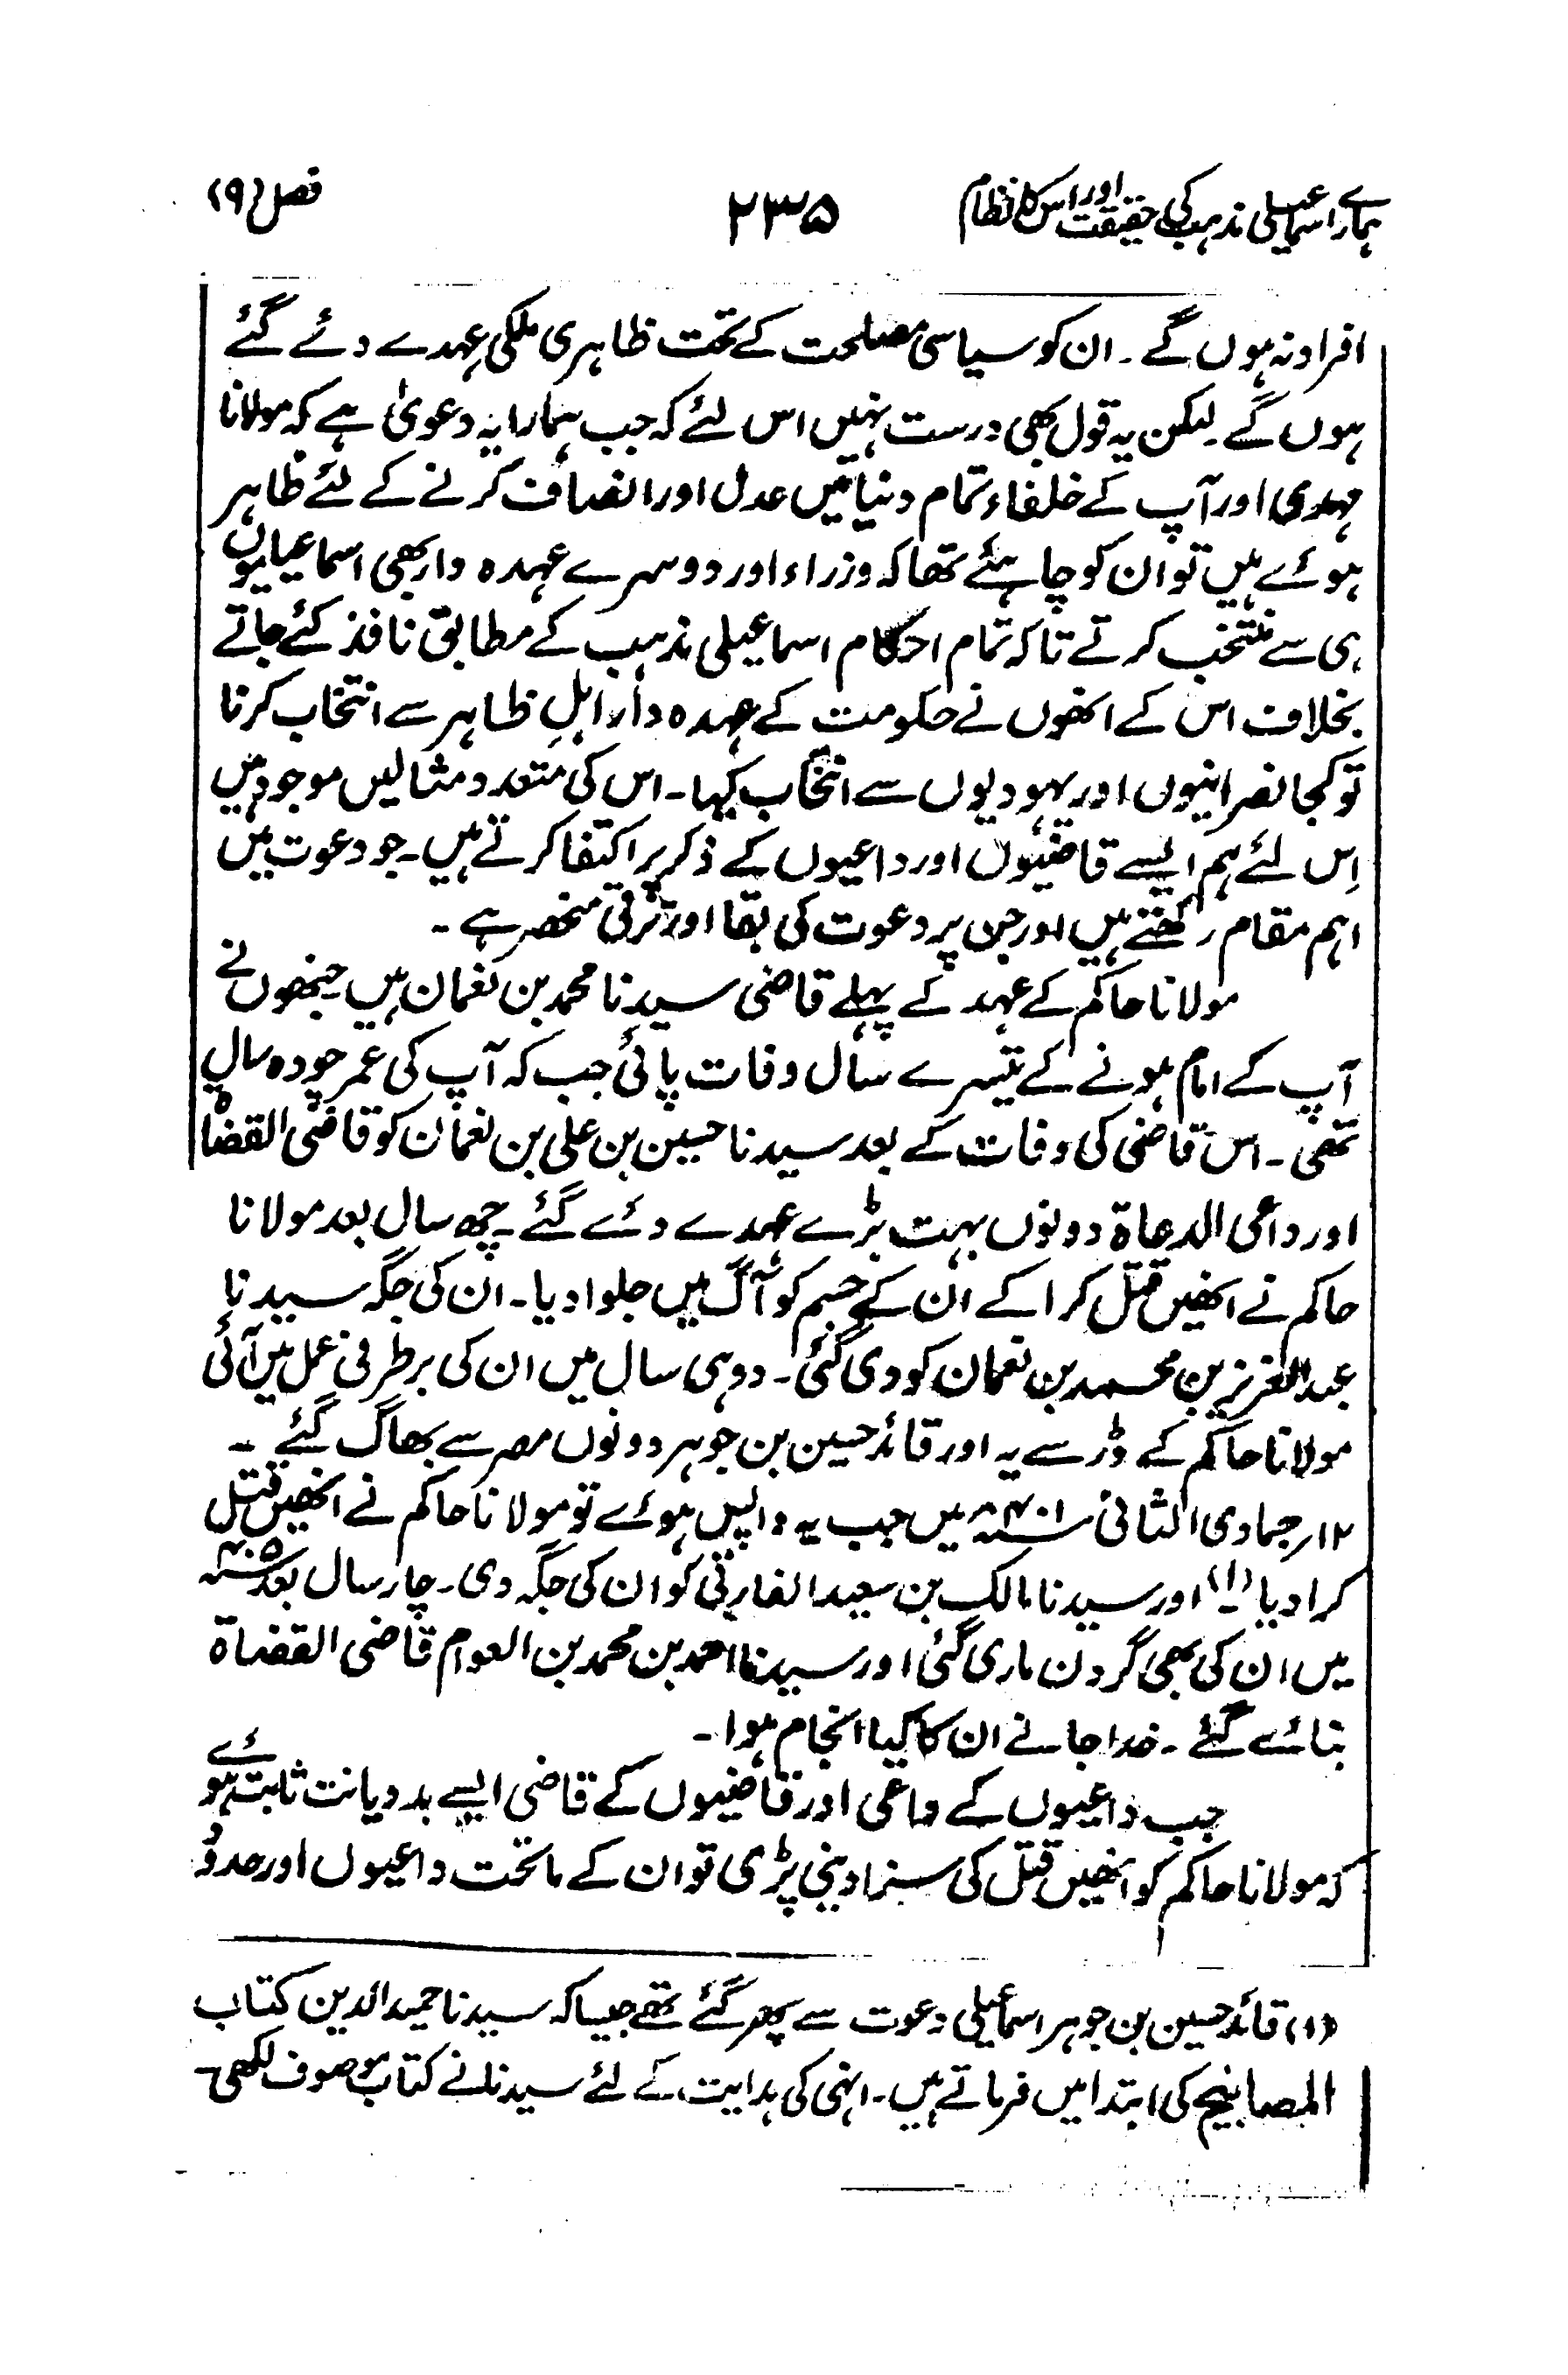 ہمارے اسماعیلی مذہب کی حقیقت اور اس کا نظام
۲۳۵
فصل (۹)
افراد نہ ہوں گے ۔ ان کو سیاسی مصلحت کے تحت ظاہری ملکی عہدے دئے گئے
ہوں گے ۔ لیکن یہ قول بھی درست نہیں اس لئے کہ جب ہمارا یہ دعویٰ ہے کہ مولانا
مہدی اور آپ کے خلفاء تمام دنیا میں عدل اور انصاف کرنے کے لئے ظاہر
ہوئے ہیں تو ان کو چاہئے تھا کہ وزراء اور دوسرے عہدہ دار بھی اسماعیلیوں
ہی سے منتخب کرتے تاکہ تمام احکام اسماعیلی مذہب کے مطابق نافذ کئے جاتے
بخلاف اس کے انھوں نے حکومت کے عہدہ دار اہلِ ظاہر سے انتخاب کرنا
تو کجا نصرانیوں اور یہودیوں سے انتخاب کیا ۔ اس کی متعدد مثالیں موجود ہیں
اِس لئے ہم ایسے قاضیوں اور داعیوں کے ذکر پر اکتفا کرتے ہیں ۔ جو دعوت میں
اہم مقام رکھتے ہیں اور جن پر دعوت کی بقا اور ترقی منحصر ہے ۔
مولانا حاکم کے عہد کے پہلے قاضی سیدنا محمد بن نعمان ہیں جنھوں نے
آپ کے امام ہونے کے تیسرے سال وفات پائی جب کہ آپ کی عمر چودہ سال
تھی ۔ اس قاضی کی وفات کے بعد سیدنا حسین بن علی بن نعمان کو قاضی القضاۃ
اور داعی الدعاۃ دونوں بہت بڑے عہدے دئے گئے ۔ چھ سال بعد مولانا
حاکم نے انھیں قتل کرا کے ان کے جسم کو آگ میں جلوا دیا ۔ ان کی جگہ سیدنا
عبدالعزیز بن محمد بن نعمان کو دی گئی ۔ دو ہی سال میں ان کی برطرفی عمل میں آئی
مولانا حاکم کے ڈر سے یہ اور قائد حسین بن جوہر دونوں مصر سے بھاگ گئے ۔
۱۲؍ جمادی الثانی ۴۰۱ھ میں جب یہ واپس ہوئے تو مولانا حاکم نے انھیں قتل
کرا دیا (۱) اور سیدنا مالک بن سعید الفارقی کو ان کی جگہ دی ۔ چار سال بعد ۴۰۵ھ
میں ان کی بھی گردن ماری گئی اور سیدنا احمد بن محمد بن العوام قاضی القضاۃ
بنائے گئے ۔ خدا جانے ان کا کیا انجام ہوا ۔
جب داعیوں کے داعی اور قاضیوں کے قاضی ایسے بددیانت ثابت ہوئے
کہ مولانا حاکم کو انھیں قتل کی سزا دینی پڑی تو ان کے ماتحت داعیوں اور حدود
(۱) قائد حسین بن جوہر اسماعیلی دعوت سے پھر گئے تھے جیسا کہ سیدنا حمید الدین کتاب
المصابیح کی ابتدا میں فرماتے ہیں ۔ انہی کی ہدایت کے لئے سیدنا نے کتاب موصوف لکھی ۔